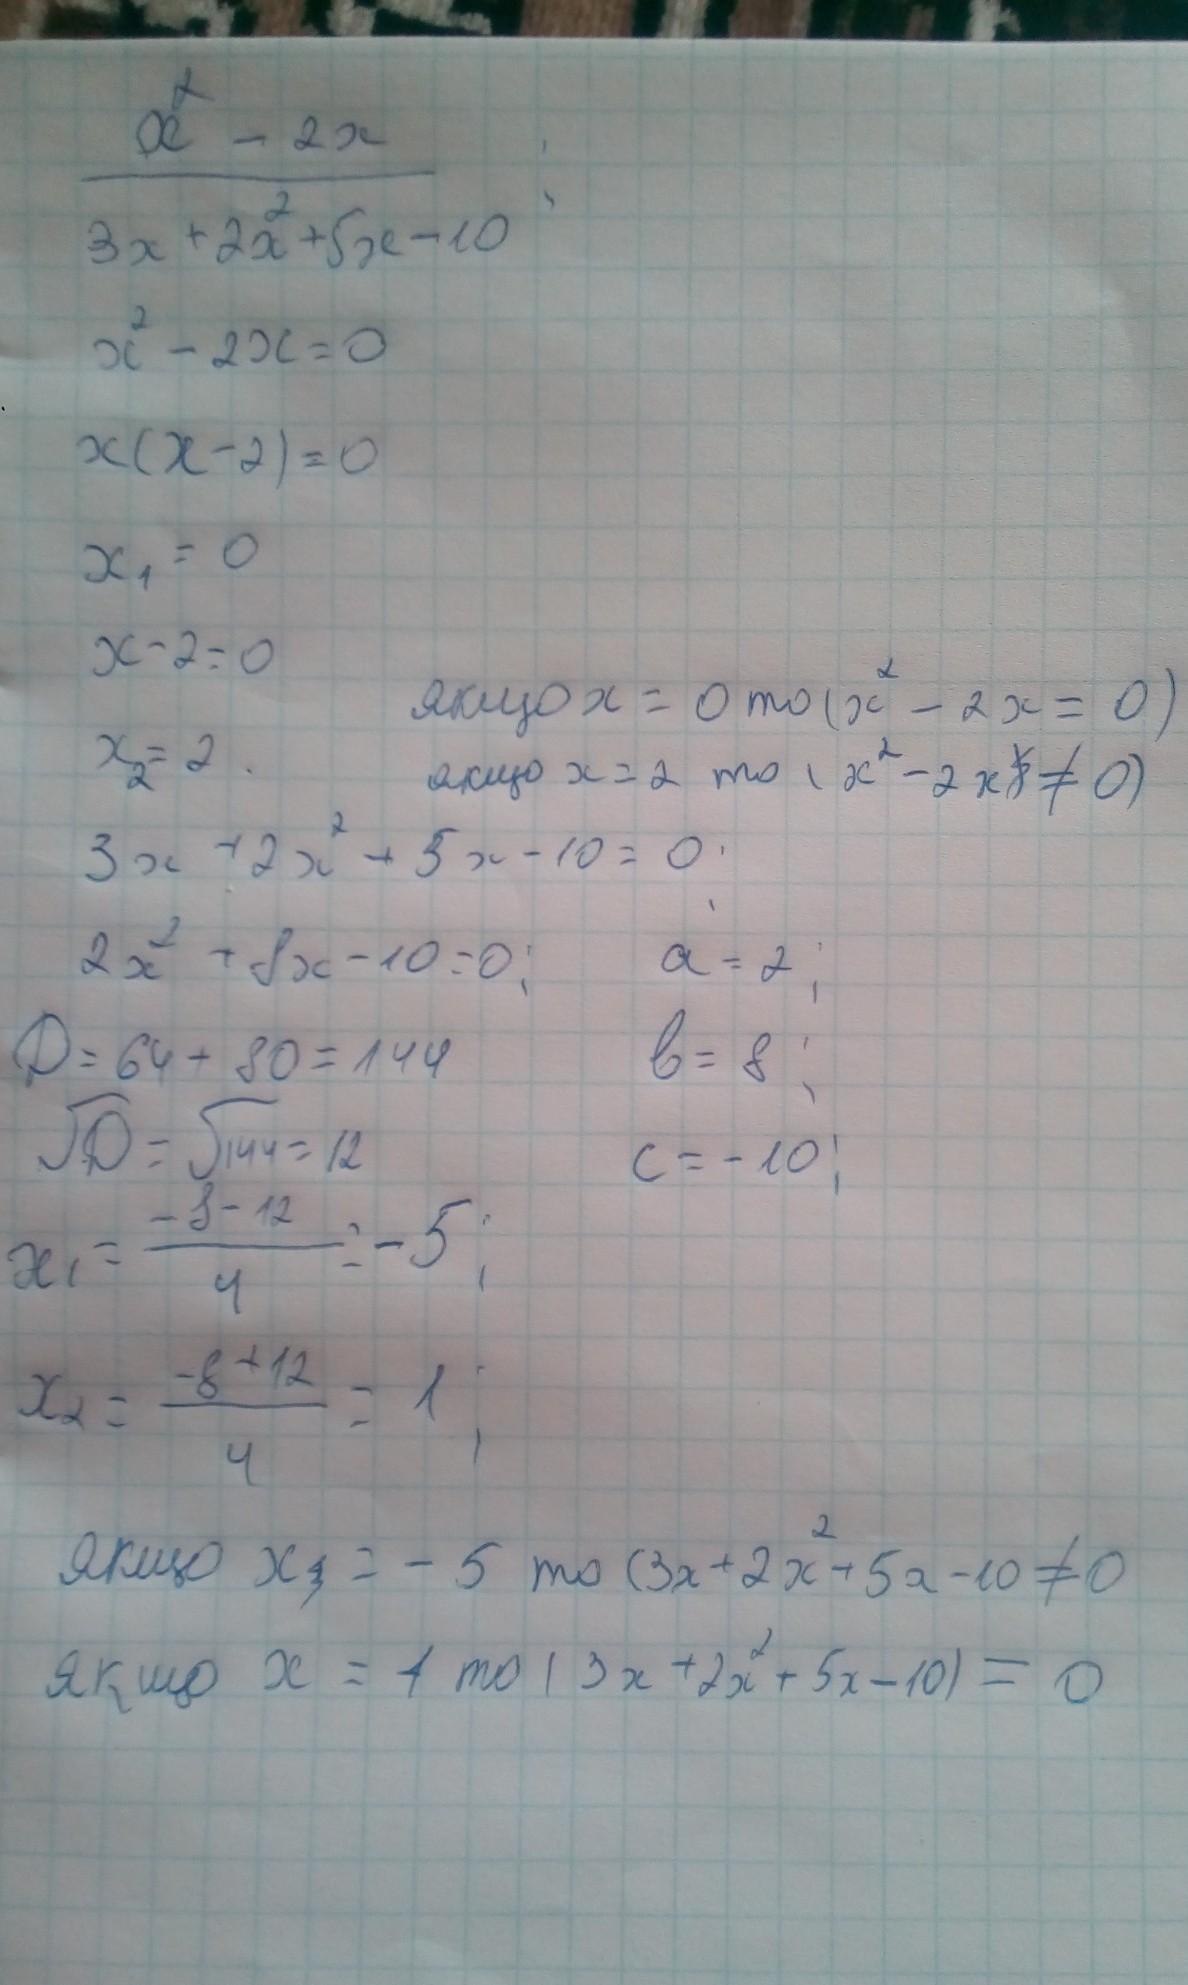 x² - 2x
3x + 2x² + 5x - 10 ;
x² - 2x = 0
x(x - 2) = 0
x₁ = 0
x - 2 = 0
якщо x = 0 то (x² - 2x = 0)
x₂ = 2.
якщо x = 2 то (x² - 2x ≠ 0)
3x + 2x² + 5x - 10 = 0;
2x² + 8x - 10 = 0; a = 2;
D = 64 + 80 = 144 b = 8;
√D = √144 = 12 c = -10;
x₁ = (-8 - 12)/4 = -5;
x₂ = (-8 + 12)/4 = 1;
якщо x = -5 то (3x + 2x² + 5x - 10 ≠ 0
якщо x = 1 то (3x + 2x² + 5x - 10) = 0